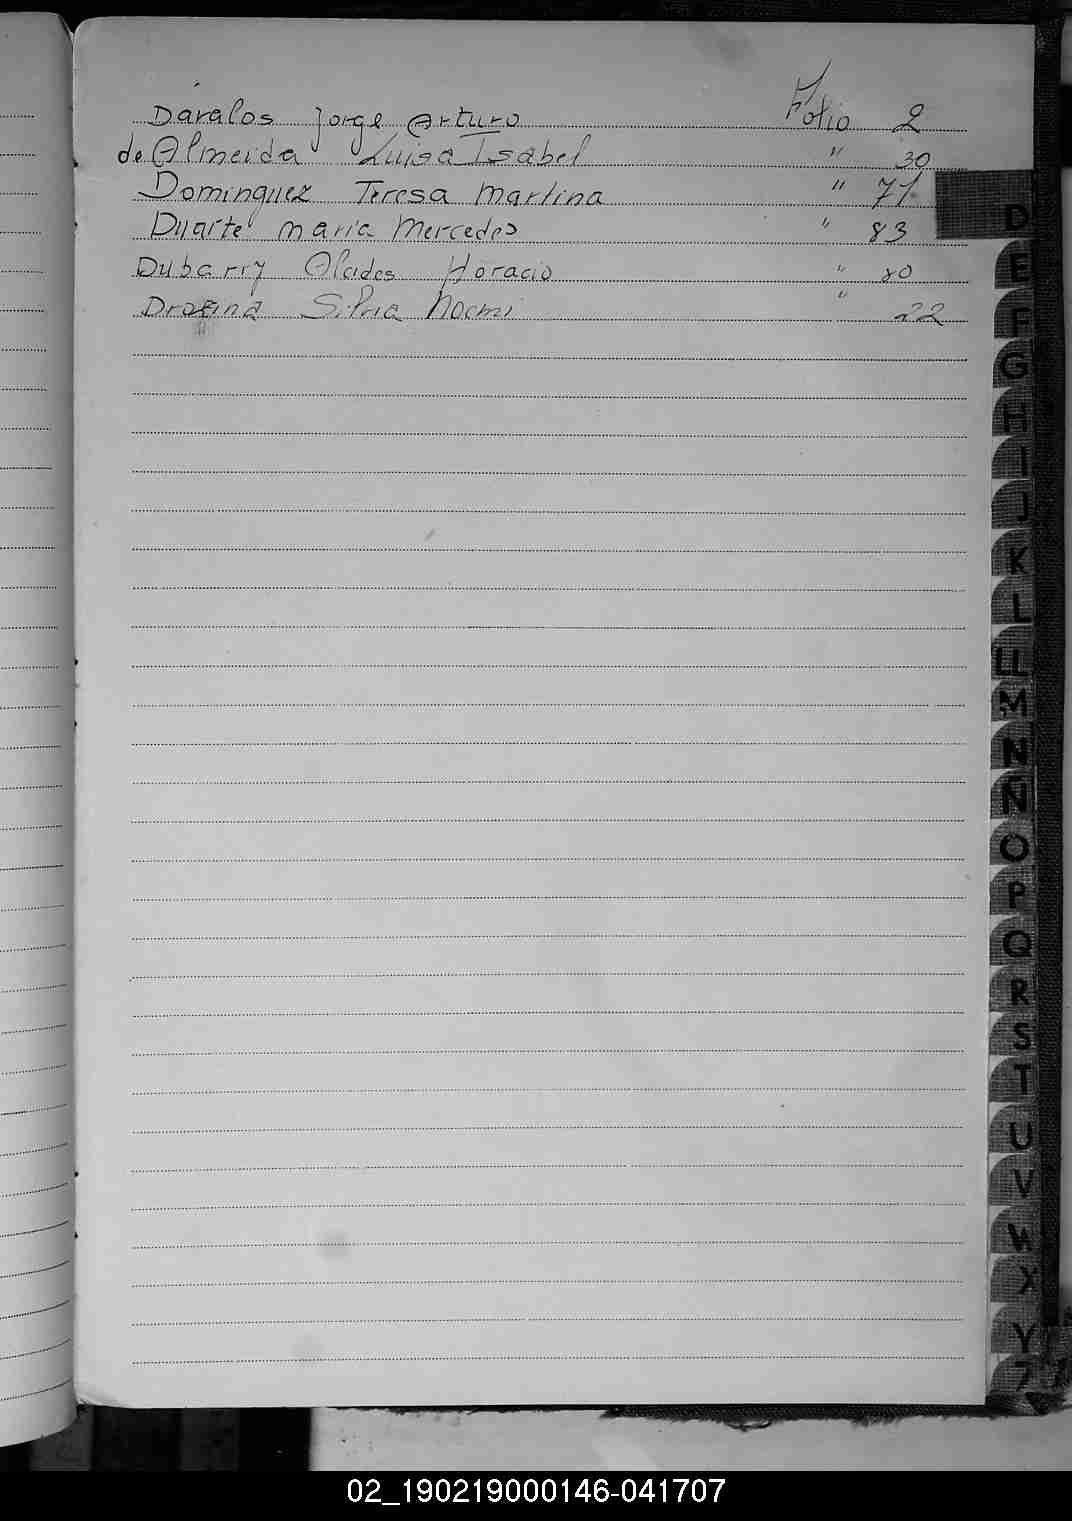 Daralos Jorge Arturo Folio 2
de Almeida Luisa Isabel " 30
Dominguez Teresa Martina " 71
Duarte Maria Mercedes " 83
Dubarry Alcides Horacio " 80
Silvia Noemi " 22
D
E
F
G
H
I
J
K
L
LL
M
N
Ñ
O
P
Q
R
S
T
U
V
W
X
Y
Z
02_190219000146-041707